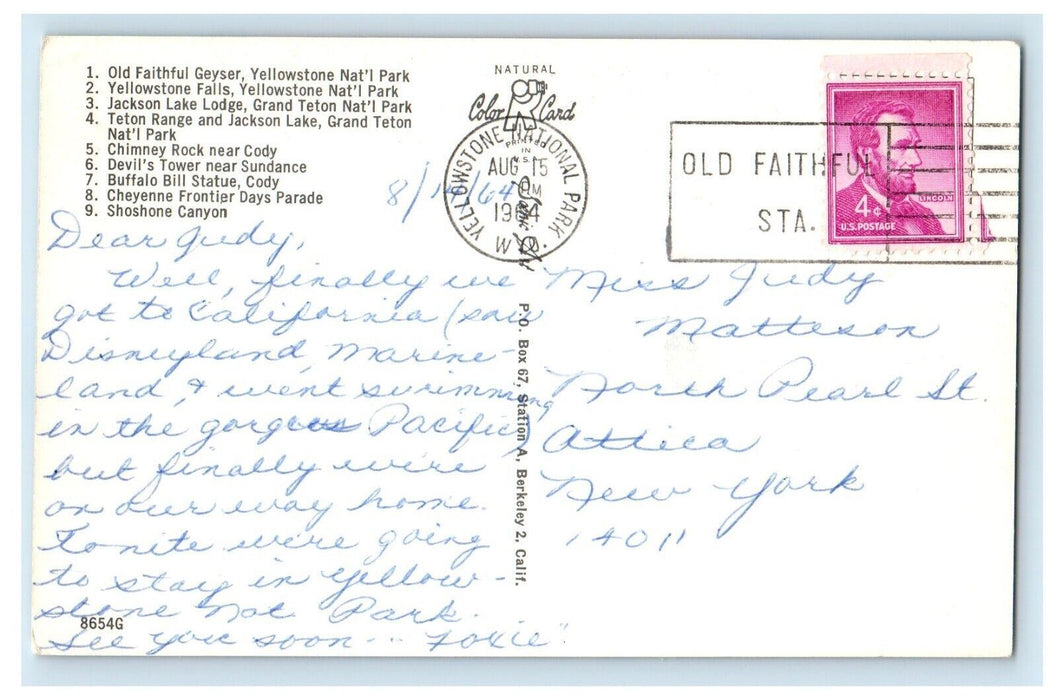 1. Old Faithful Geyser, Yellowstone Nat'l Park
2. Yellowstone Falls, Yellowstone Nat'l Park
3. Jackson Lake Lodge, Grand Teton Nat'l Park
4. Teton Range and Jackson Lake, Grand Teton
Nat'l Park
5. Chimney Rock near Cody
6. Devil's Tower near Sundance
7. Buffalo Bill Statue, Cody
8. Cheyenne Frontier Days Parade
9. Shoshone Canyon
NATURAL
Color Card
PRINTED
IN
U.S.A.
YELLOWSTONE NATIONAL PARK
AUG 15
PM
1964
WYO.
OLD FAITHFUL
STA.
LINCOLN
4¢
U.S. POSTAGE
8/15/64
Dear Judy,
Well, finally we
got to California (saw
Disneyland, Marine-
land, & went swimming
in the gorgeous Pacific)
but finally we're
on our way home.
Tonite we're going
to stay in Yellow-
stone Nat Park.
See you soon -- "Foxie"
8654G
P.O. Box 67, Station A, Berkeley 2, Calif.
Miss Judy
Matteson
North Pearl St.
Attica
New York
14011